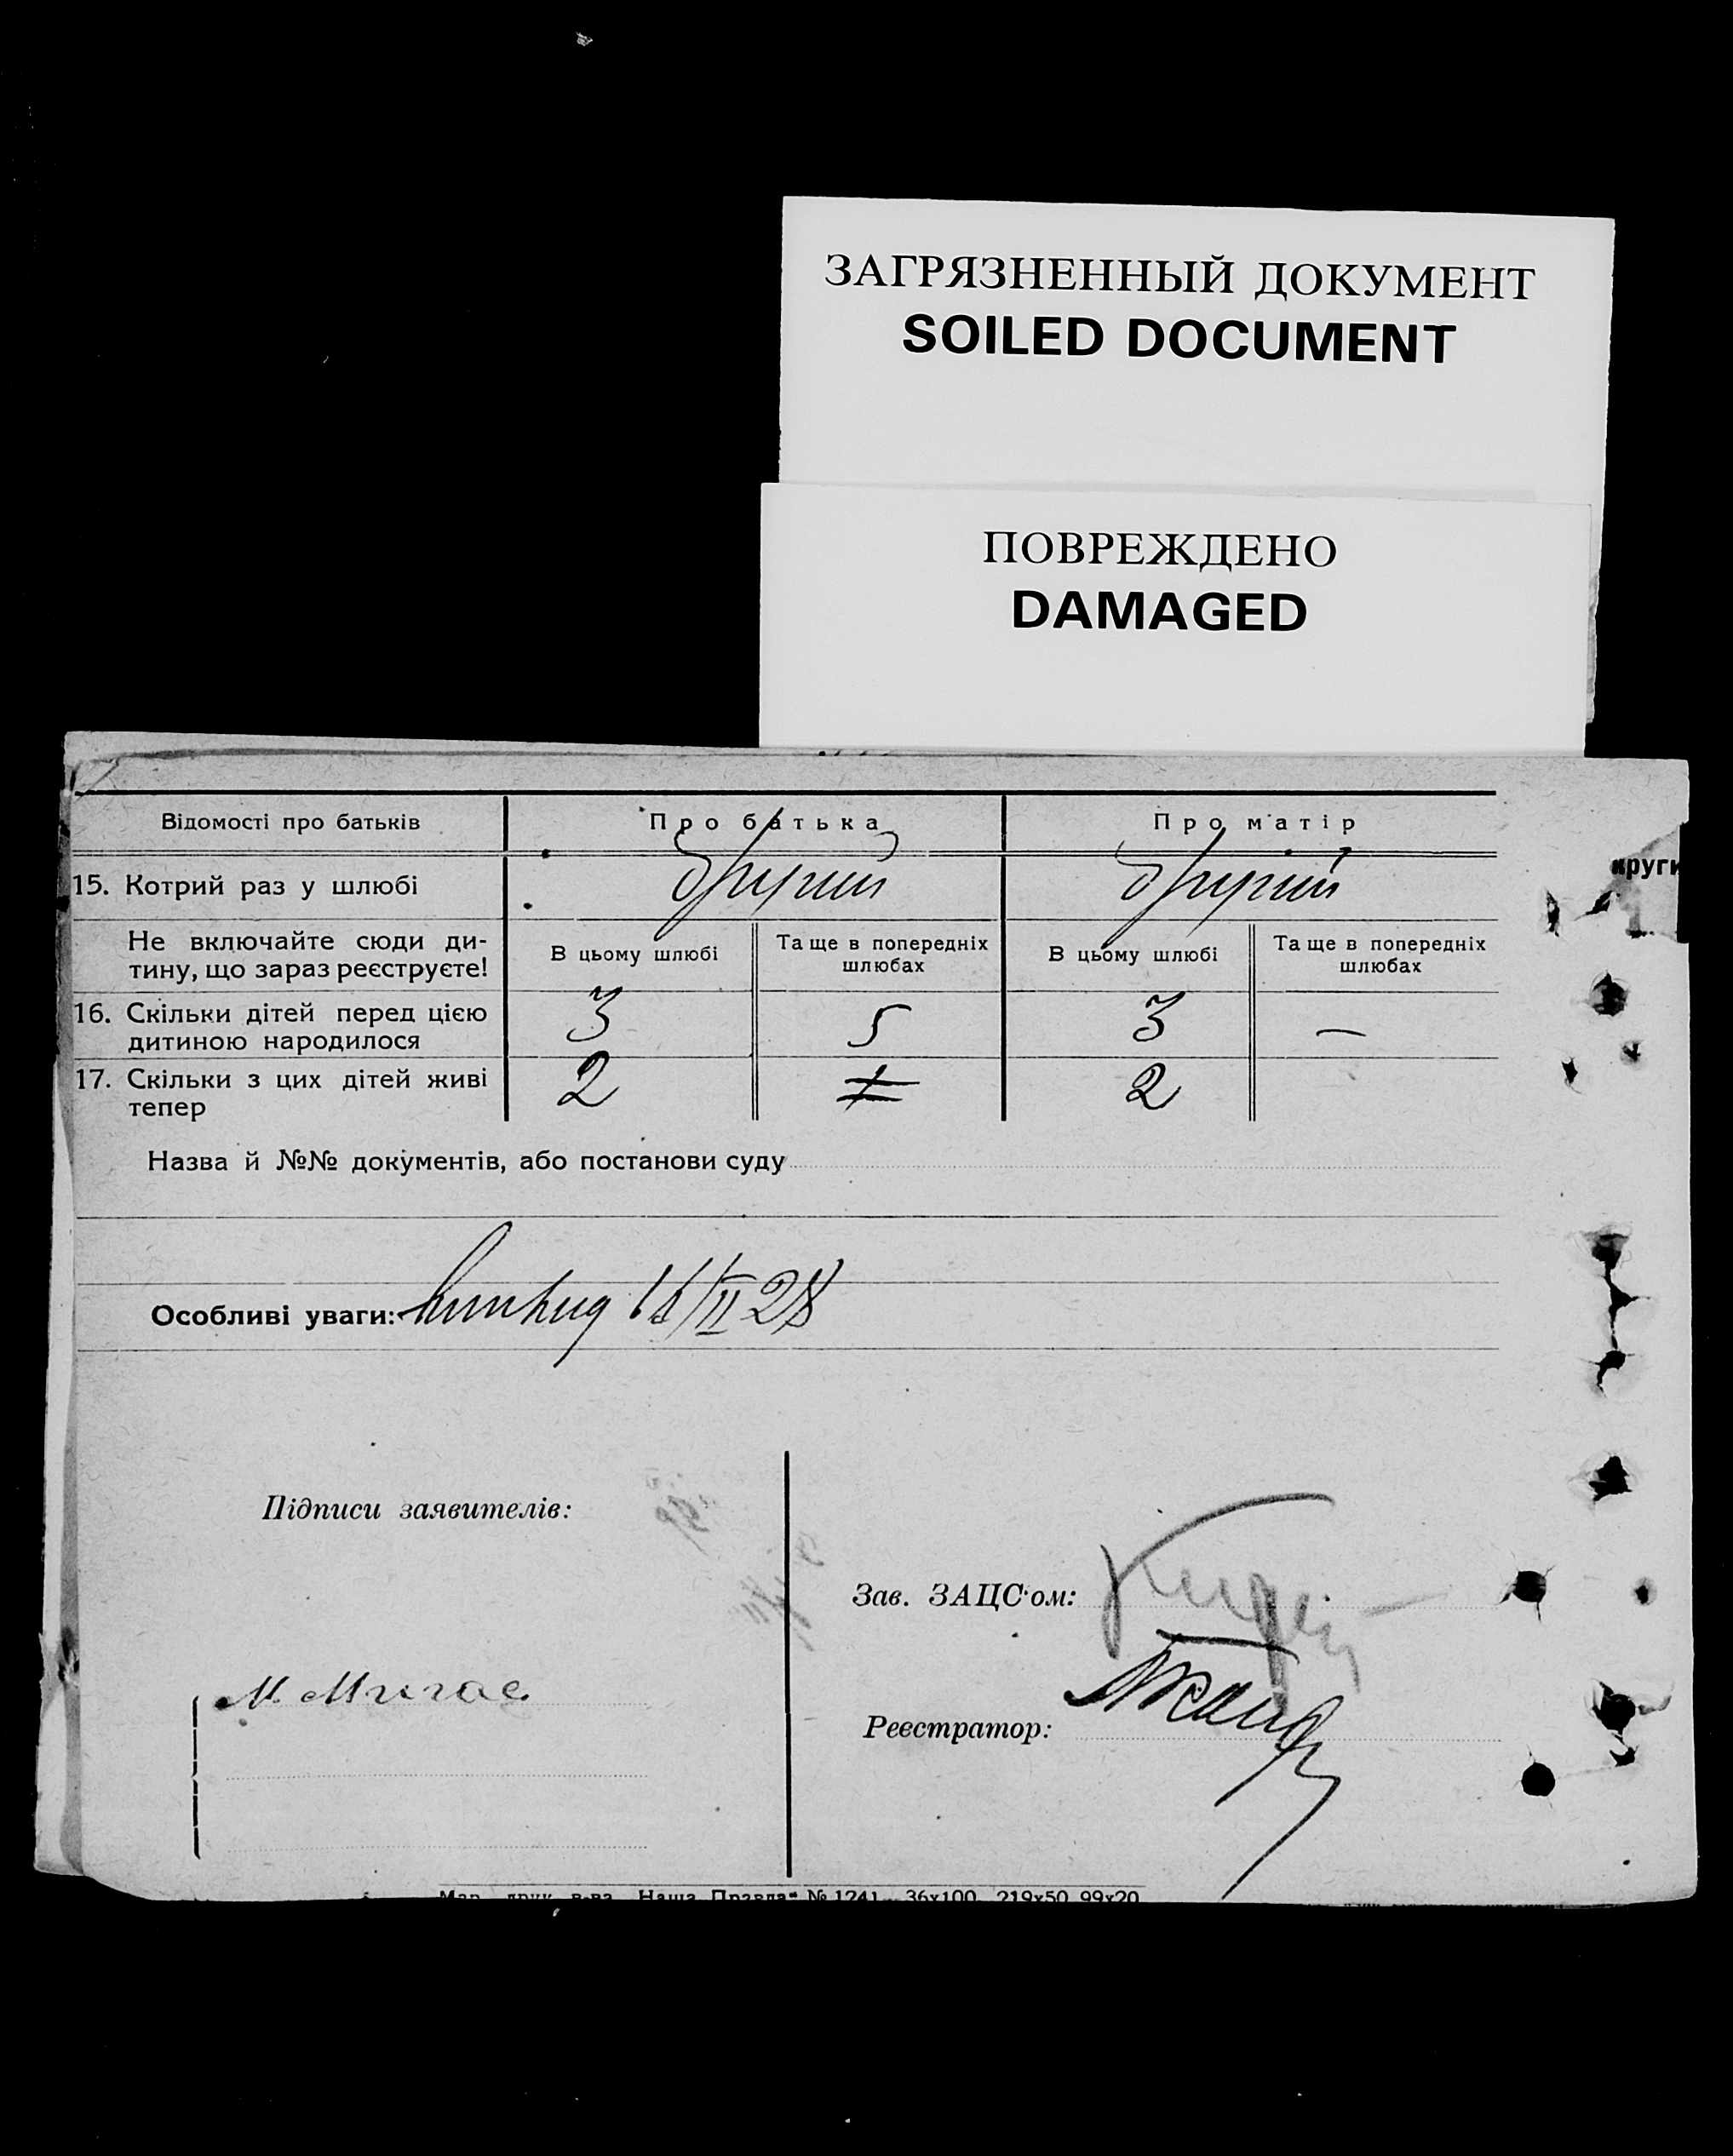 ЗАГРЯЗНЕННЫЙ ДОКУМЕНТ
SOILED DOCUMENT
ПОВРЕЖДЕНО
DAMAGED
Відомості про батьків Про батька Про матір
круги
15. Котрий раз у шлюбі другий другий
Не включайте сюди ди-
тину, що зараз реєструєте!
В цьому шлюбі
Та ще в попередніх
шлюбах
В цьому шлюбі
Та ще в попередніх
шлюбах
16. Скільки дітей перед цією
дитиною народилося
3 5 3 —
17. Скільки з цих дітей живі
тепер
2 2
Назва й №№ документів, або постанови суду
Особливі уваги: /II 28
Підписи заявителів:
Зав. ЗАЦС'ом:
М.
Реєстратор:
Мар. друк. в-ва „Наша Правда“ № 1241 36х100 219х50 99х20